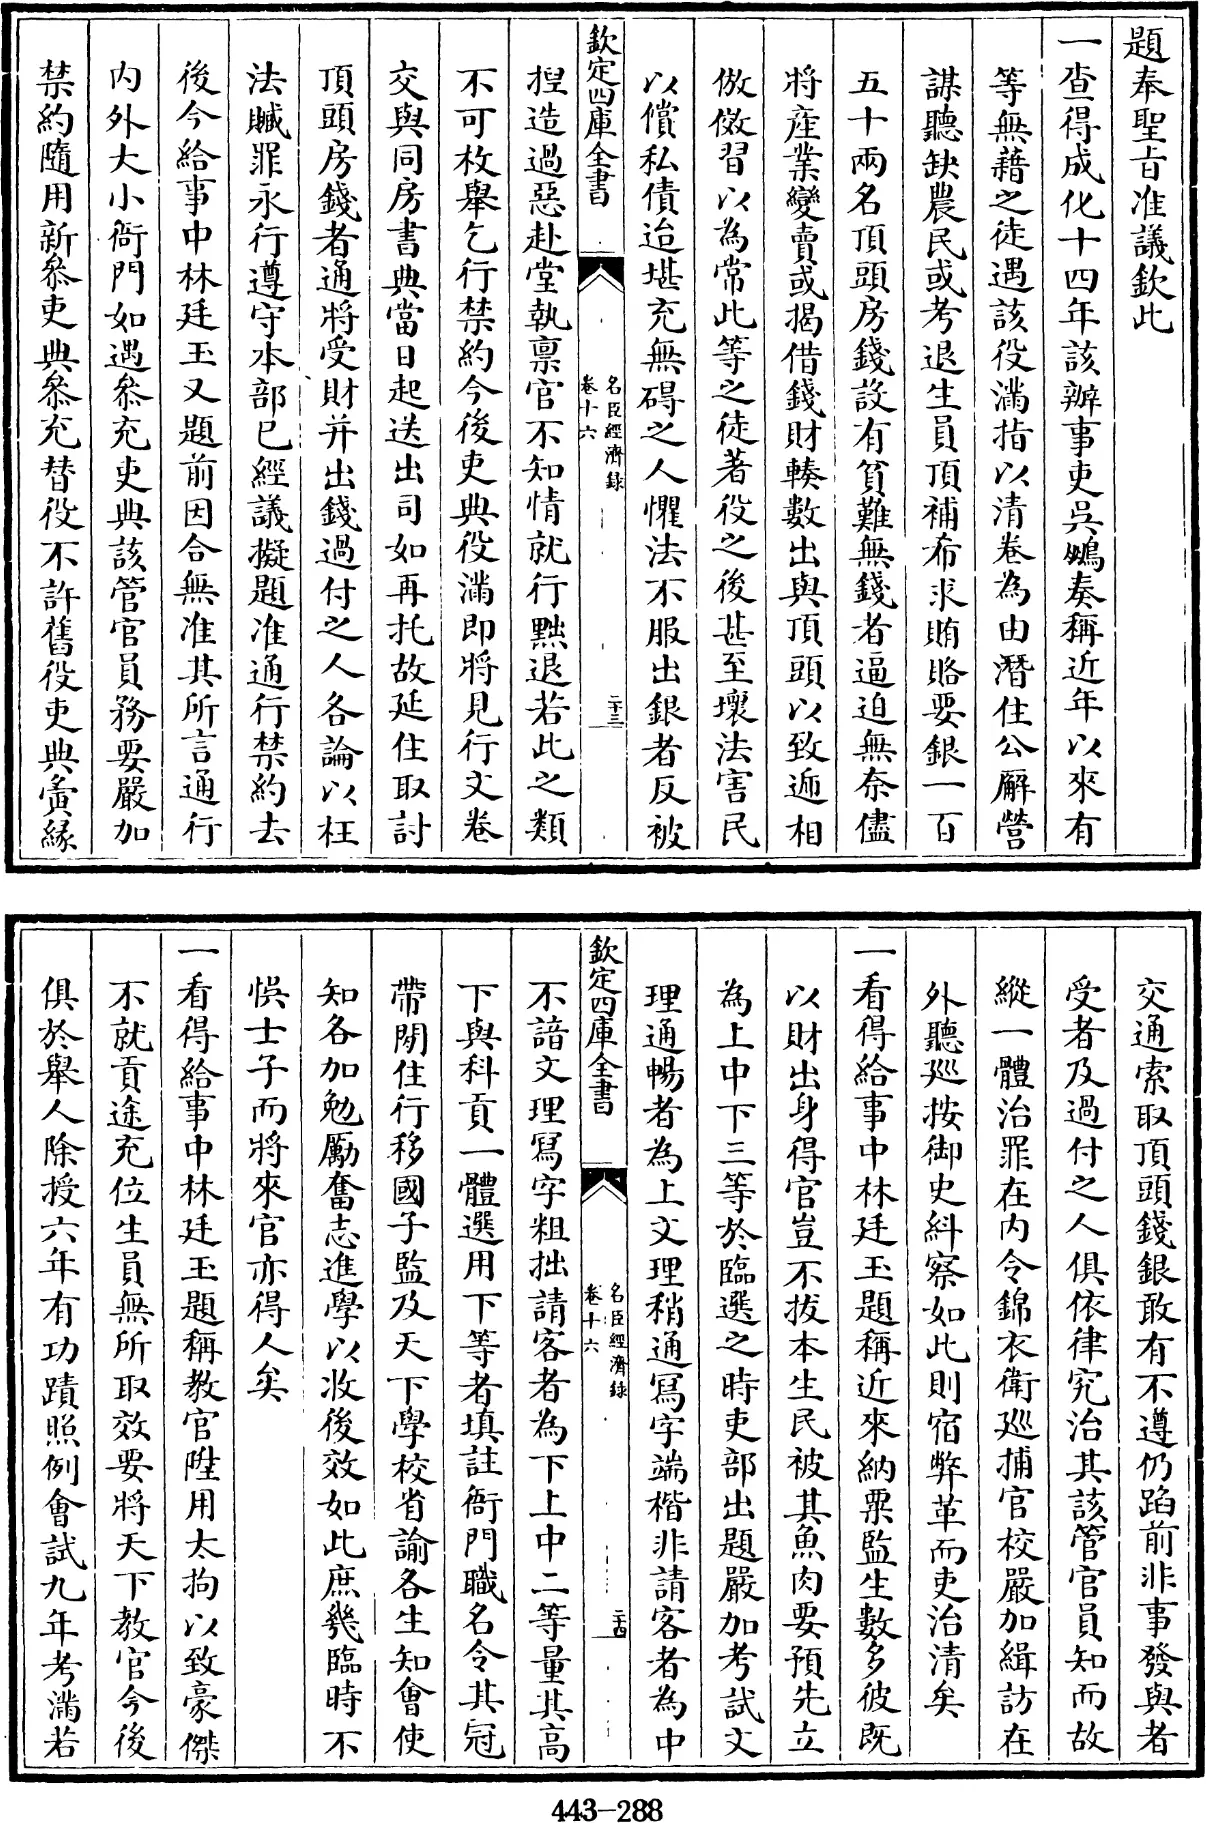 題奉聖旨准議欽此
一查得成化十四年該辦事吏吳鵾奏稱近年以來有
等無藉之徒遇該役滿指以清卷為由潛住公廨營
謀聽缺農民或考退生員頂補布求賄賂要銀一百
五十兩名頂頭房錢設有貧難無錢者逼迫無奈儘
將產業變賣或揭借錢財輳數出與頂頭以致逓相
倣傚習以為常此等之徒著役之後甚至壞法害民
以償私債迨堪充無碍之人懼法不服出銀者反被
欽定四庫全書
名臣經濟錄
卷十六
二十三
捏造過惡赴堂執禀官不知情就行黜退若此之類
不可枚舉乞行禁約今後吏典役滿即將見行文卷
交與同房書典當日起送出司如再托故延住取討
頂頭房錢者通將受財并出錢過付之人各論以枉
法贓罪永行遵守本部已經議擬題准通行禁約去
後今給事中林廷玉又題前因合無准其所言通行
内外大小衙門如遇叅充吏典該管官員務要嚴加
禁約隨用新叅吏典叅充替役不許舊役吏典夤緣
交通索取頂頭錢銀敢有不遵仍蹈前非事發與者
受者及過付之人俱依律究治其該管官員知而故
縱一體治罪在内令錦衣衛廵捕官校嚴加緝訪在
外聽廵按御史糾察如此則宿弊革而吏治清矣
一看得給事中林廷玉題稱近來納粟監生數多彼既
以財出身得官豈不拔本生民被其魚肉要預先立
為上中下三等於臨選之時吏部出題嚴加考試文
理通暢者為上文理稍通寫字端楷非請客者為中
欽定四庫全書
名臣經濟錄
卷十六
二十四
不諳文理寫字粗拙請客者為下上中二等量其高
下與科貢一體選用下等者填註衙門職名令其冠
帶閑住行移國子監及天下學校省諭各生知會使
知各加勉勵奮志進學以收後效如此庶幾臨時不
悞士子而將來官亦得人矣
一看得給事中林廷玉題稱教官陞用太拘以致豪傑
不就貢途充位生員無所取效要將天下教官今後
俱於舉人除授六年有功蹟照例會試九年考滿若
443-288